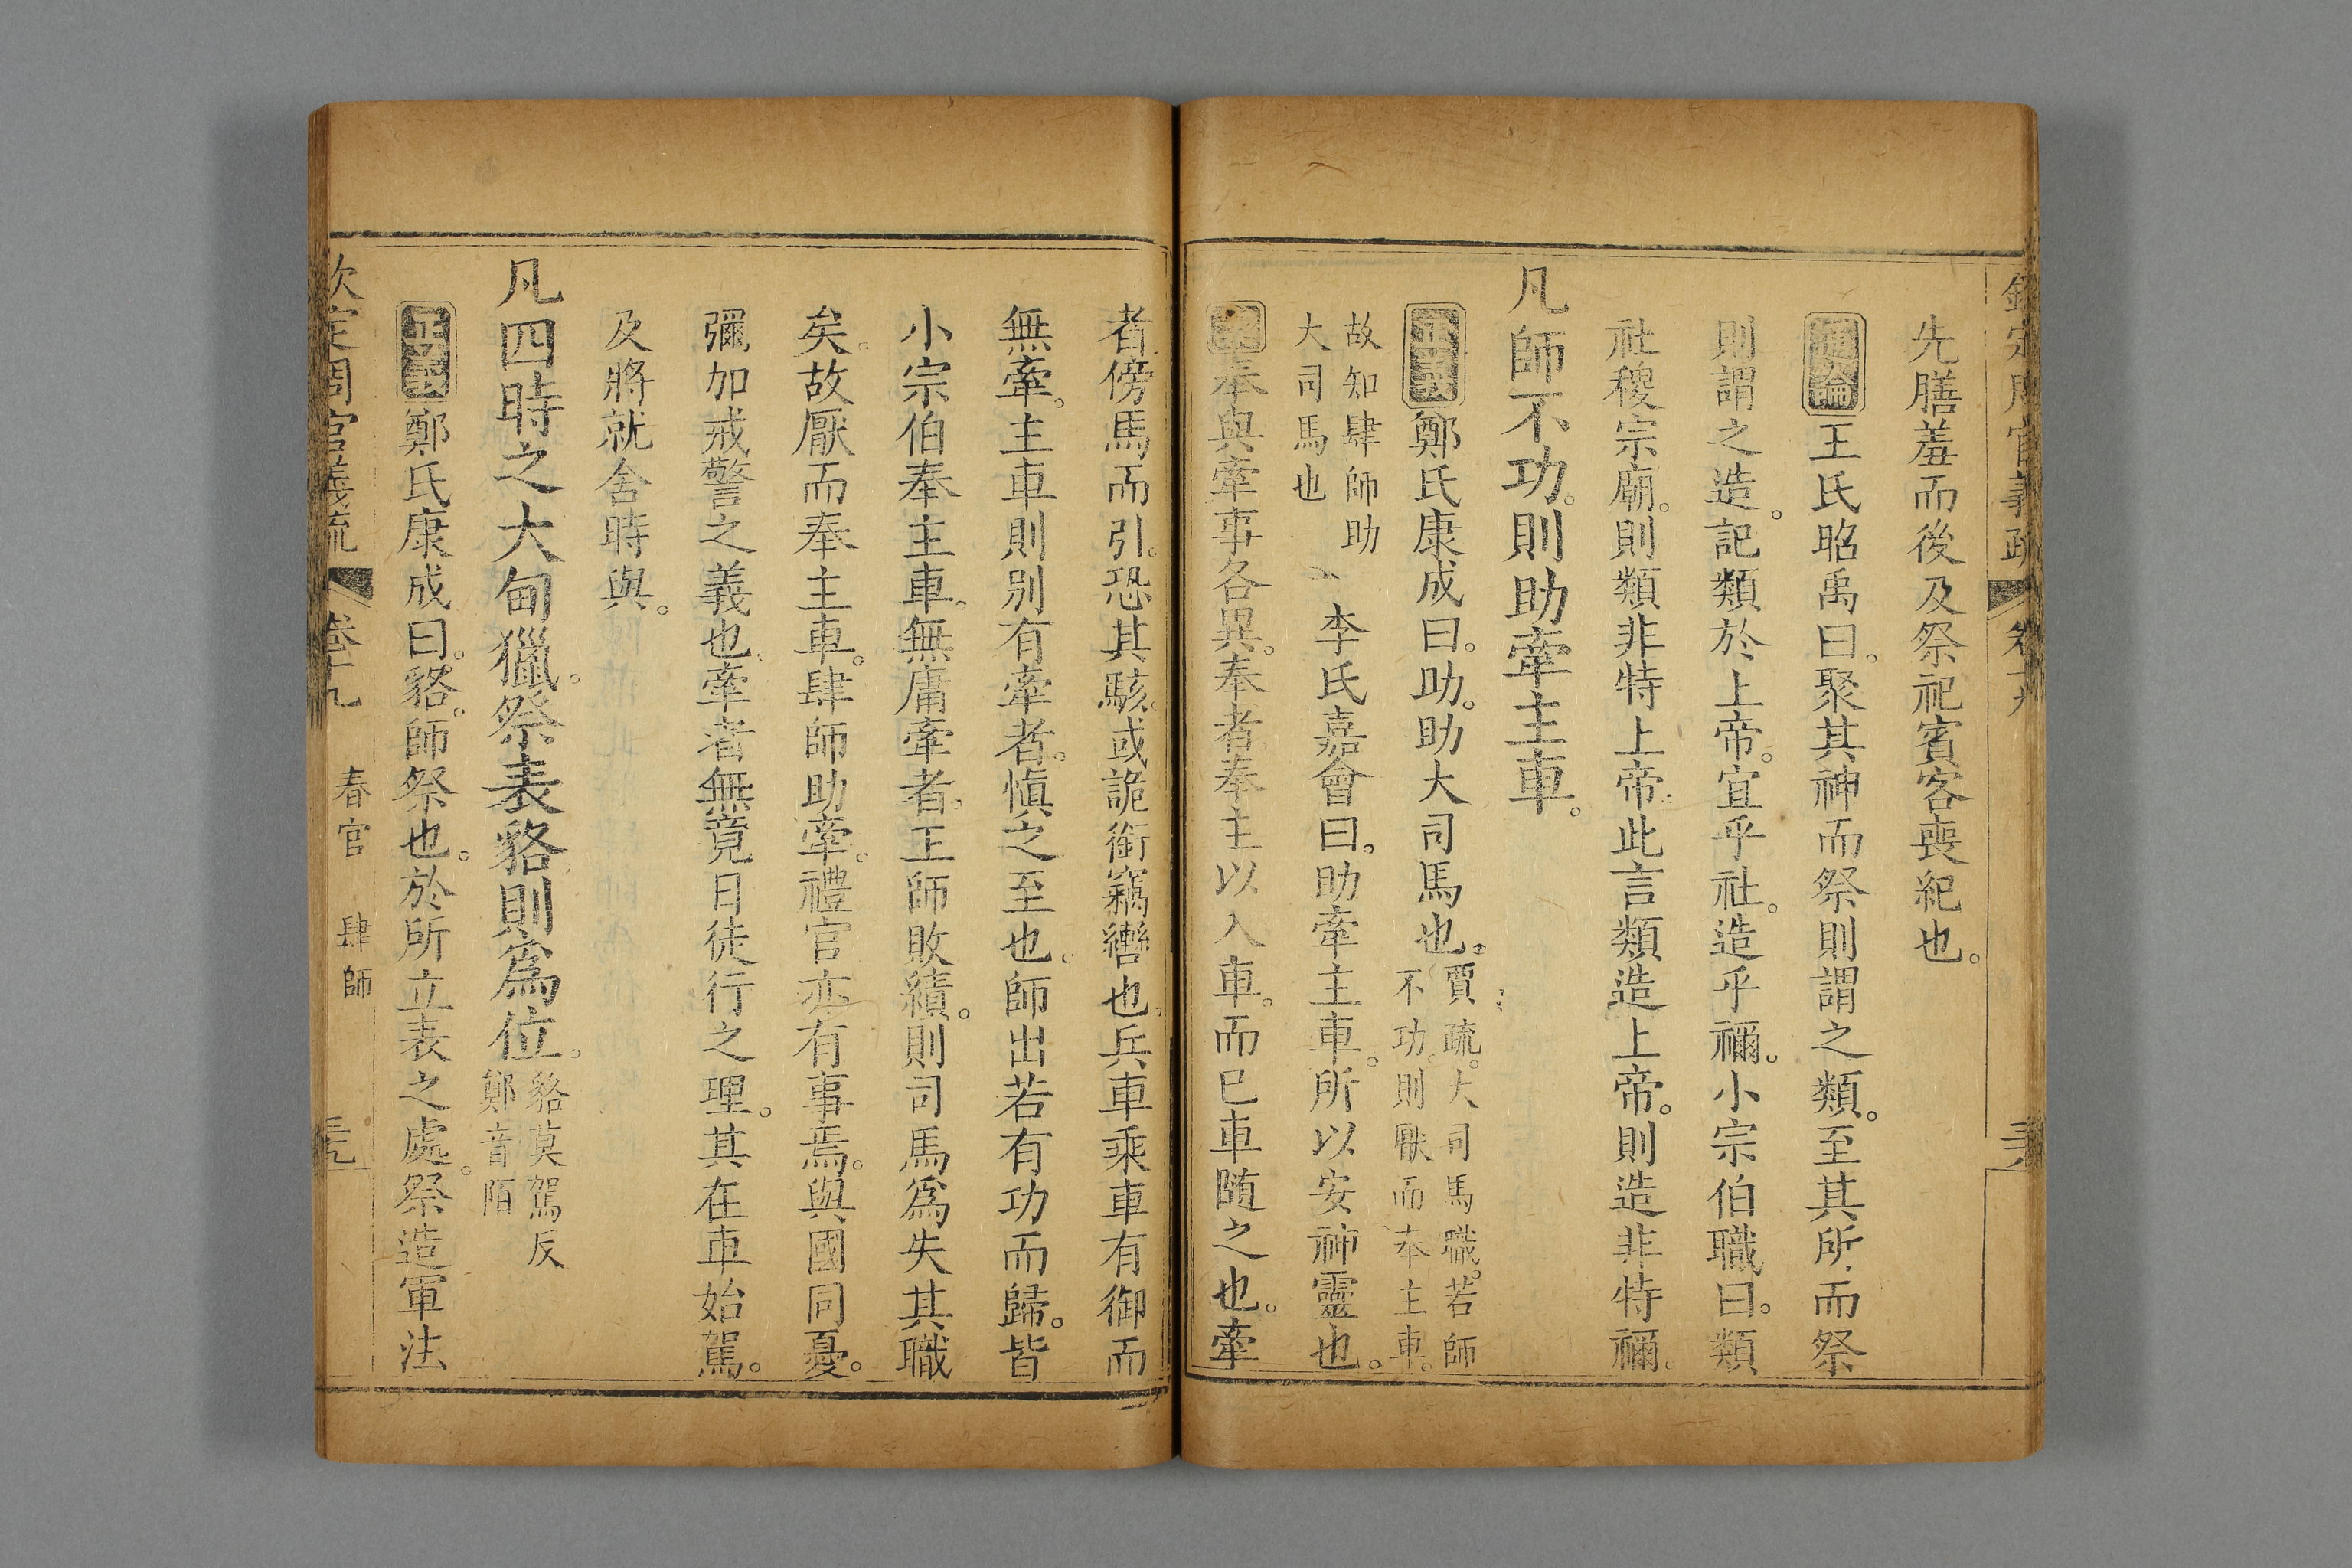 欽定周官義疏 卷十九 三十八
先膳羞而後及祭祀賓客喪紀也。
通論王氏昭禹曰。聚其神而祭則謂之類。至其所而祭
則謂之造。記類於上帝。宜乎社。造乎禰。小宗伯職曰。類
社稷宗廟。則類非特上帝。此言類造上帝。則造非特禰。
凡師不功。則助牽主車。
正義鄭氏康成曰。助。助大司馬也。賈疏。大司馬職。若師
不功。則厭而奉主車。
故知肆師助
大司馬也
李氏嘉會曰。助牽主車。所以安神靈也。
案奉與牽事各異。奉者。奉主以入車。而巳車隨之也。牽
者。傍馬而引。恐其駭。或詭銜竊轡也。兵車乘車有御而
無牽。主車則别有牽者。愼之至也。師出若有功而歸。皆
小宗伯奉主車。無庸牽者。王師敗績。則司馬爲失其職
矣。故厭而奉主車。肆師助牽。禮官亦有事焉。與國同憂。
彌加戒警之義也。牽者無竟日徒行之理。其在車始駕。
及將就舍時與。
凡四時之大甸獵。祭表貉。則爲位。貉莫駕反
鄭音陌
正義鄭氏康成曰。貉。師祭也。於所立表之處。祭造軍法
欽定周官義疏 卷十九 春官 肆師 三十九